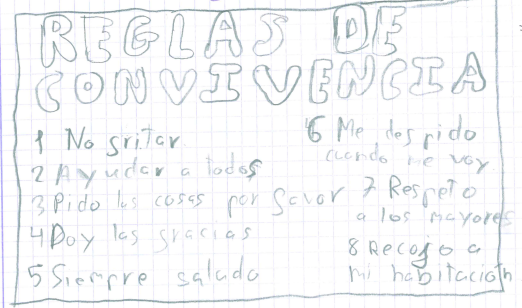 REGLAS DE
CONVIVENCIA
1 No gritar
2 Ayudar a todos
3 Pido las cosas por favor
4 Doy las gracias
5 Siempre saludo
6 Me despido
cuando me voy
7 Respeto
a los mayores
8 Recojo a
mi habitación